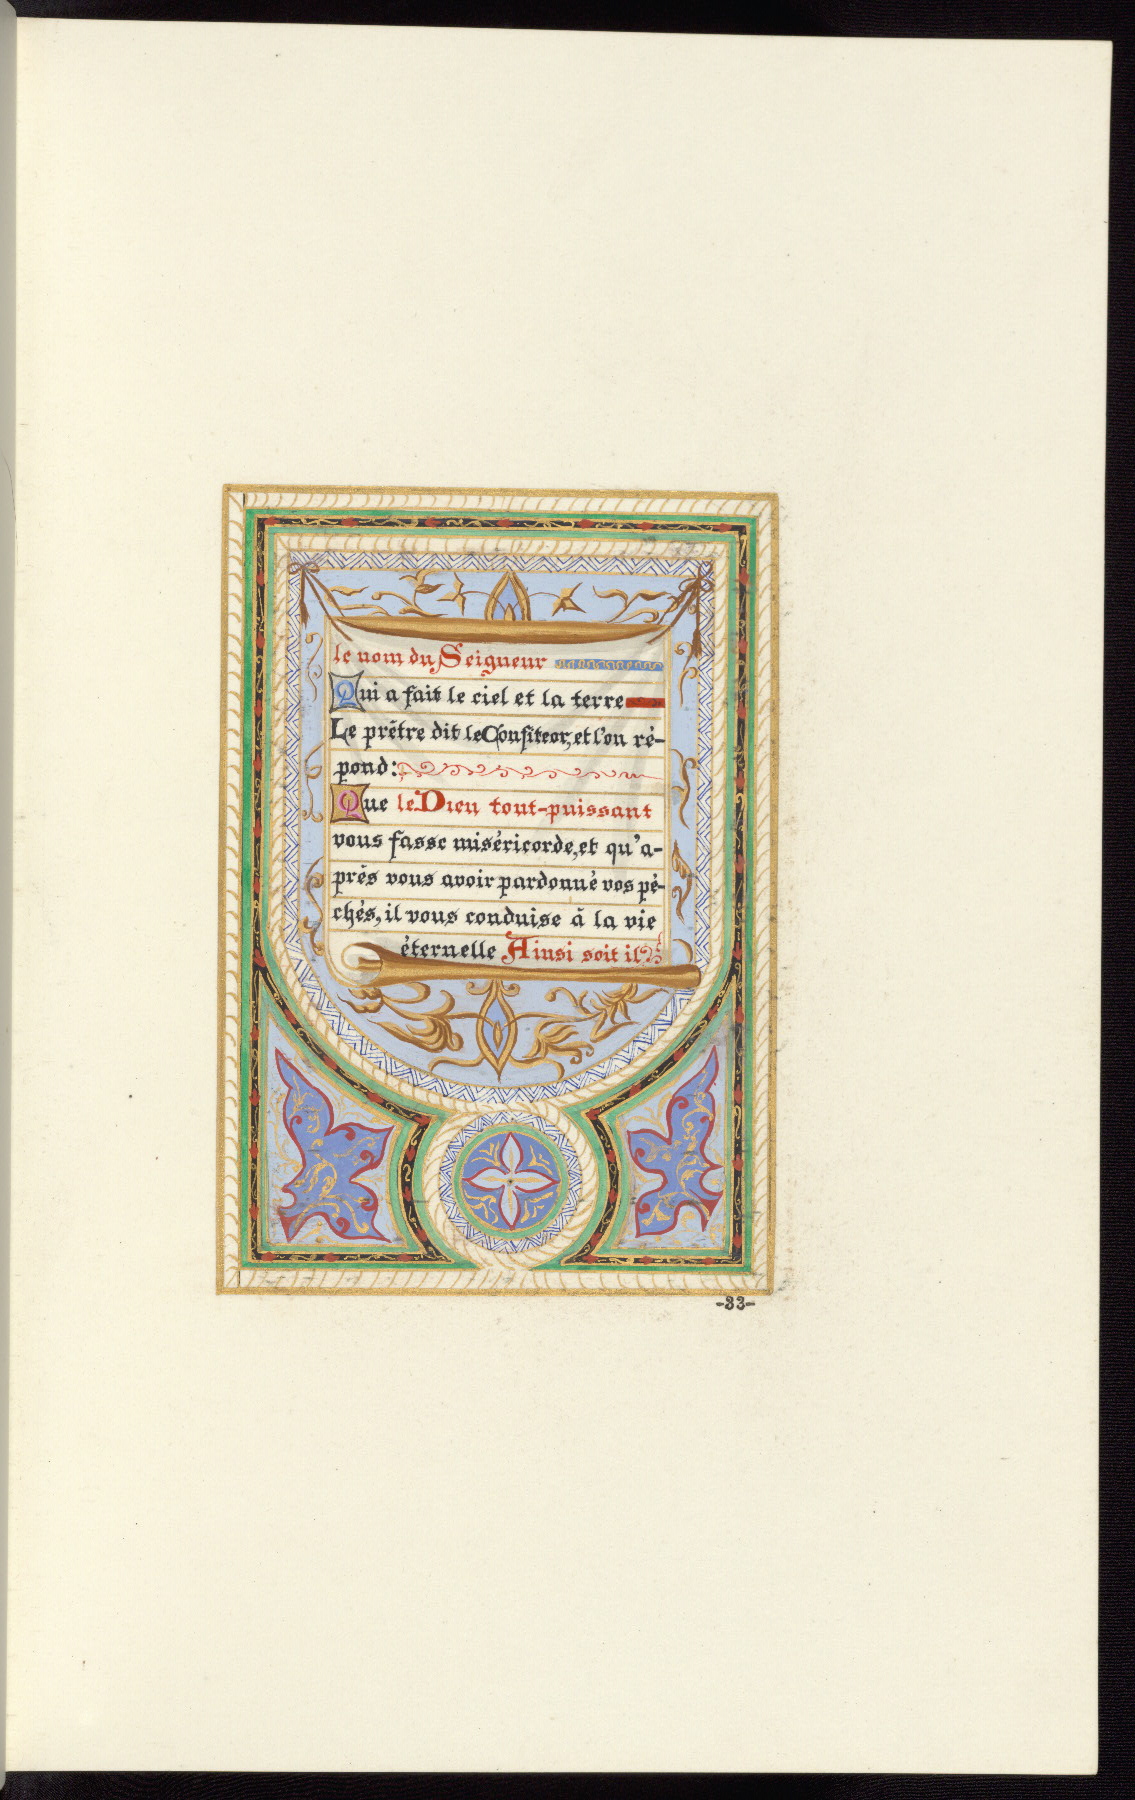 le nom du Seigneur
Qui a fait le ciel et la terre
Le prêtre dit le Confiteor, et l'on ré-
pond:
Que le Dieu tout-puissant
vous fasse miséricorde, et qu'a-
près vous avoir pardonné vos pé-
chés, il vous conduise à la vie
éternelle Ainsi soit il
-33-